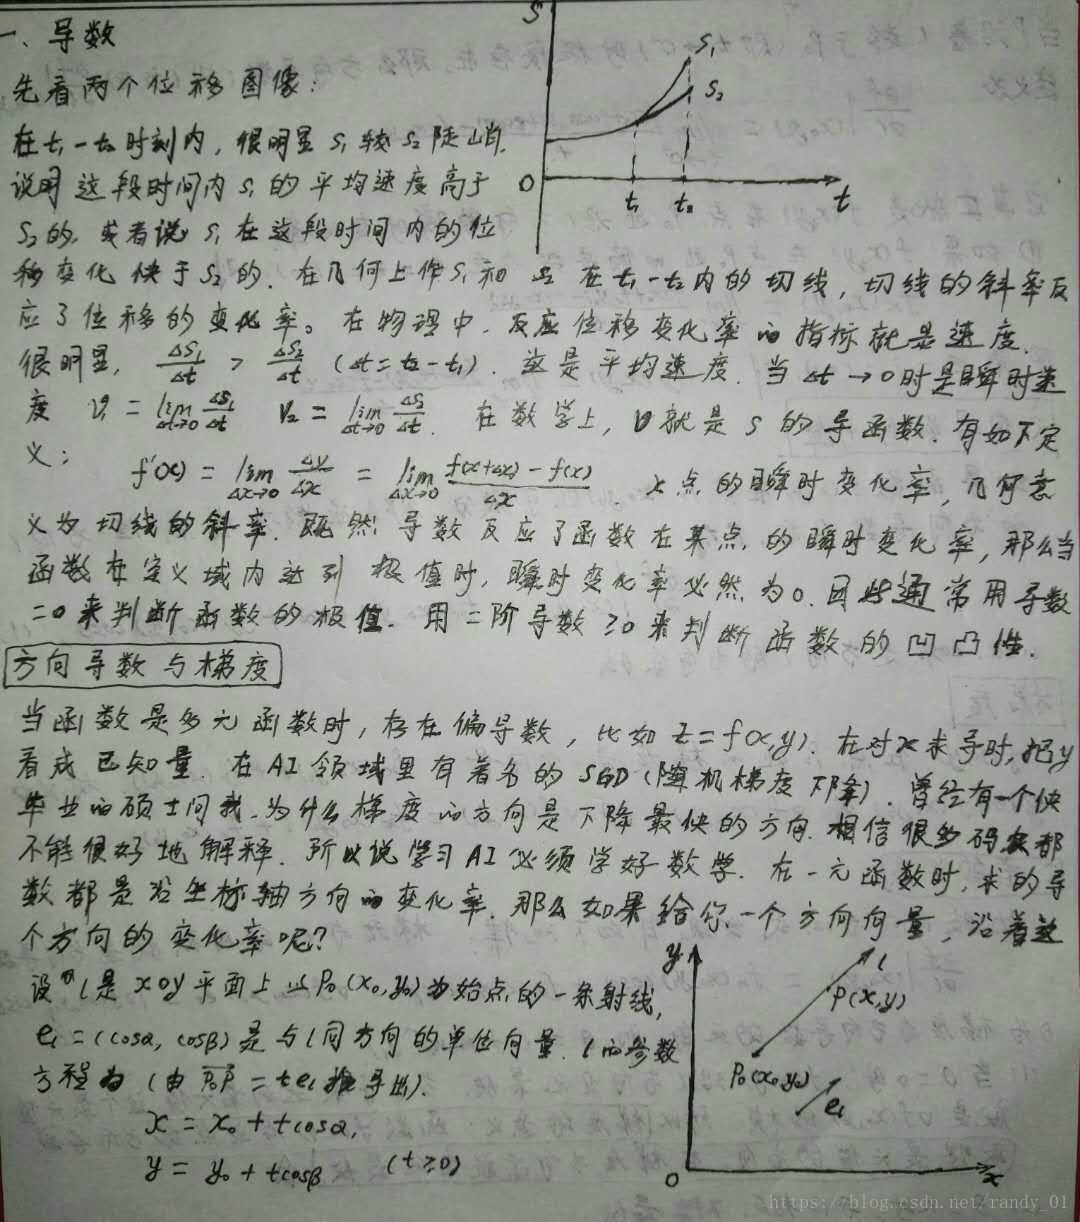 一、导数
先看两个位移图像:
在t₁-t₂时刻内, 很明显 S₁ 较 S₂ 陡峭.
说明这段时间内 S₁ 的平均速度高于
S₂的. 或者说 S₁ 在这段时间内的位
移变化快于S₂的. 在几何上作S₁和 S₂ 在 t₁-t₂内的切线, 切线的斜率反
应了位移的变化率。在物理中. 反应位移变化率的指标就是速度.
很明显, ΔS₁/Δt > ΔS₂/Δt (Δt=t₂-t₁). 这是平均速度. 当 Δt→0时是瞬时速
度 V₁ = lim Δt→0 ΔS₁/Δt V₂ = lim Δt→0 ΔS₂/Δt. 在数学上, V就是 S 的导函数. 有如下定
义:
f'(x) = lim Δx→0 Δy/Δx = lim Δx→0 (f(x+Δx)-f(x))/Δx. x点的瞬时变化率, 几何意
义为切线的斜率. 既然导数反应了函数在某点的瞬时变化率, 那么当
函数在定义域内达到 极值时, 瞬时变化率必然为0. 因此通常用导数
=0来判断函数的极值. 用二阶导数≥0来判断函数的凹凸性.
方向导数与梯度
当函数是多元函数时, 存在偏导数, 比如 Z=f(x,y). 在对x求导时, 把y
看成已知量. 在AI领域里有著名的SGD(随机梯度下降). 曾经有一个快
毕业的硕士问我. 为什么梯度的方向是下降最快的方向. 相信很多码农都
不能很好地解释. 所以说学习AI必须学好数学. 在一元函数时, 求的导
数都是沿坐标轴方向的变化率. 那么如果给你一个方向向量, 沿着这
个方向的变化率呢?
设 l是 xoy平面上以P₀(x₀,y₀)为始点的一条射线,
e₁=(cosα, cosβ)是与l同方向的单位向量. l的参数
方程为 (由 P₀P = te₁ 推导出).
x = x₀ + tcosα,
y = y₀ + tcosβ (t≥0)
S
S₁
S₂
O
t₁
t₂
t
y
l
P(x,y)
P₀(x₀,y₀)
e₁
O
x
https://blog.csdn.net/randy_01